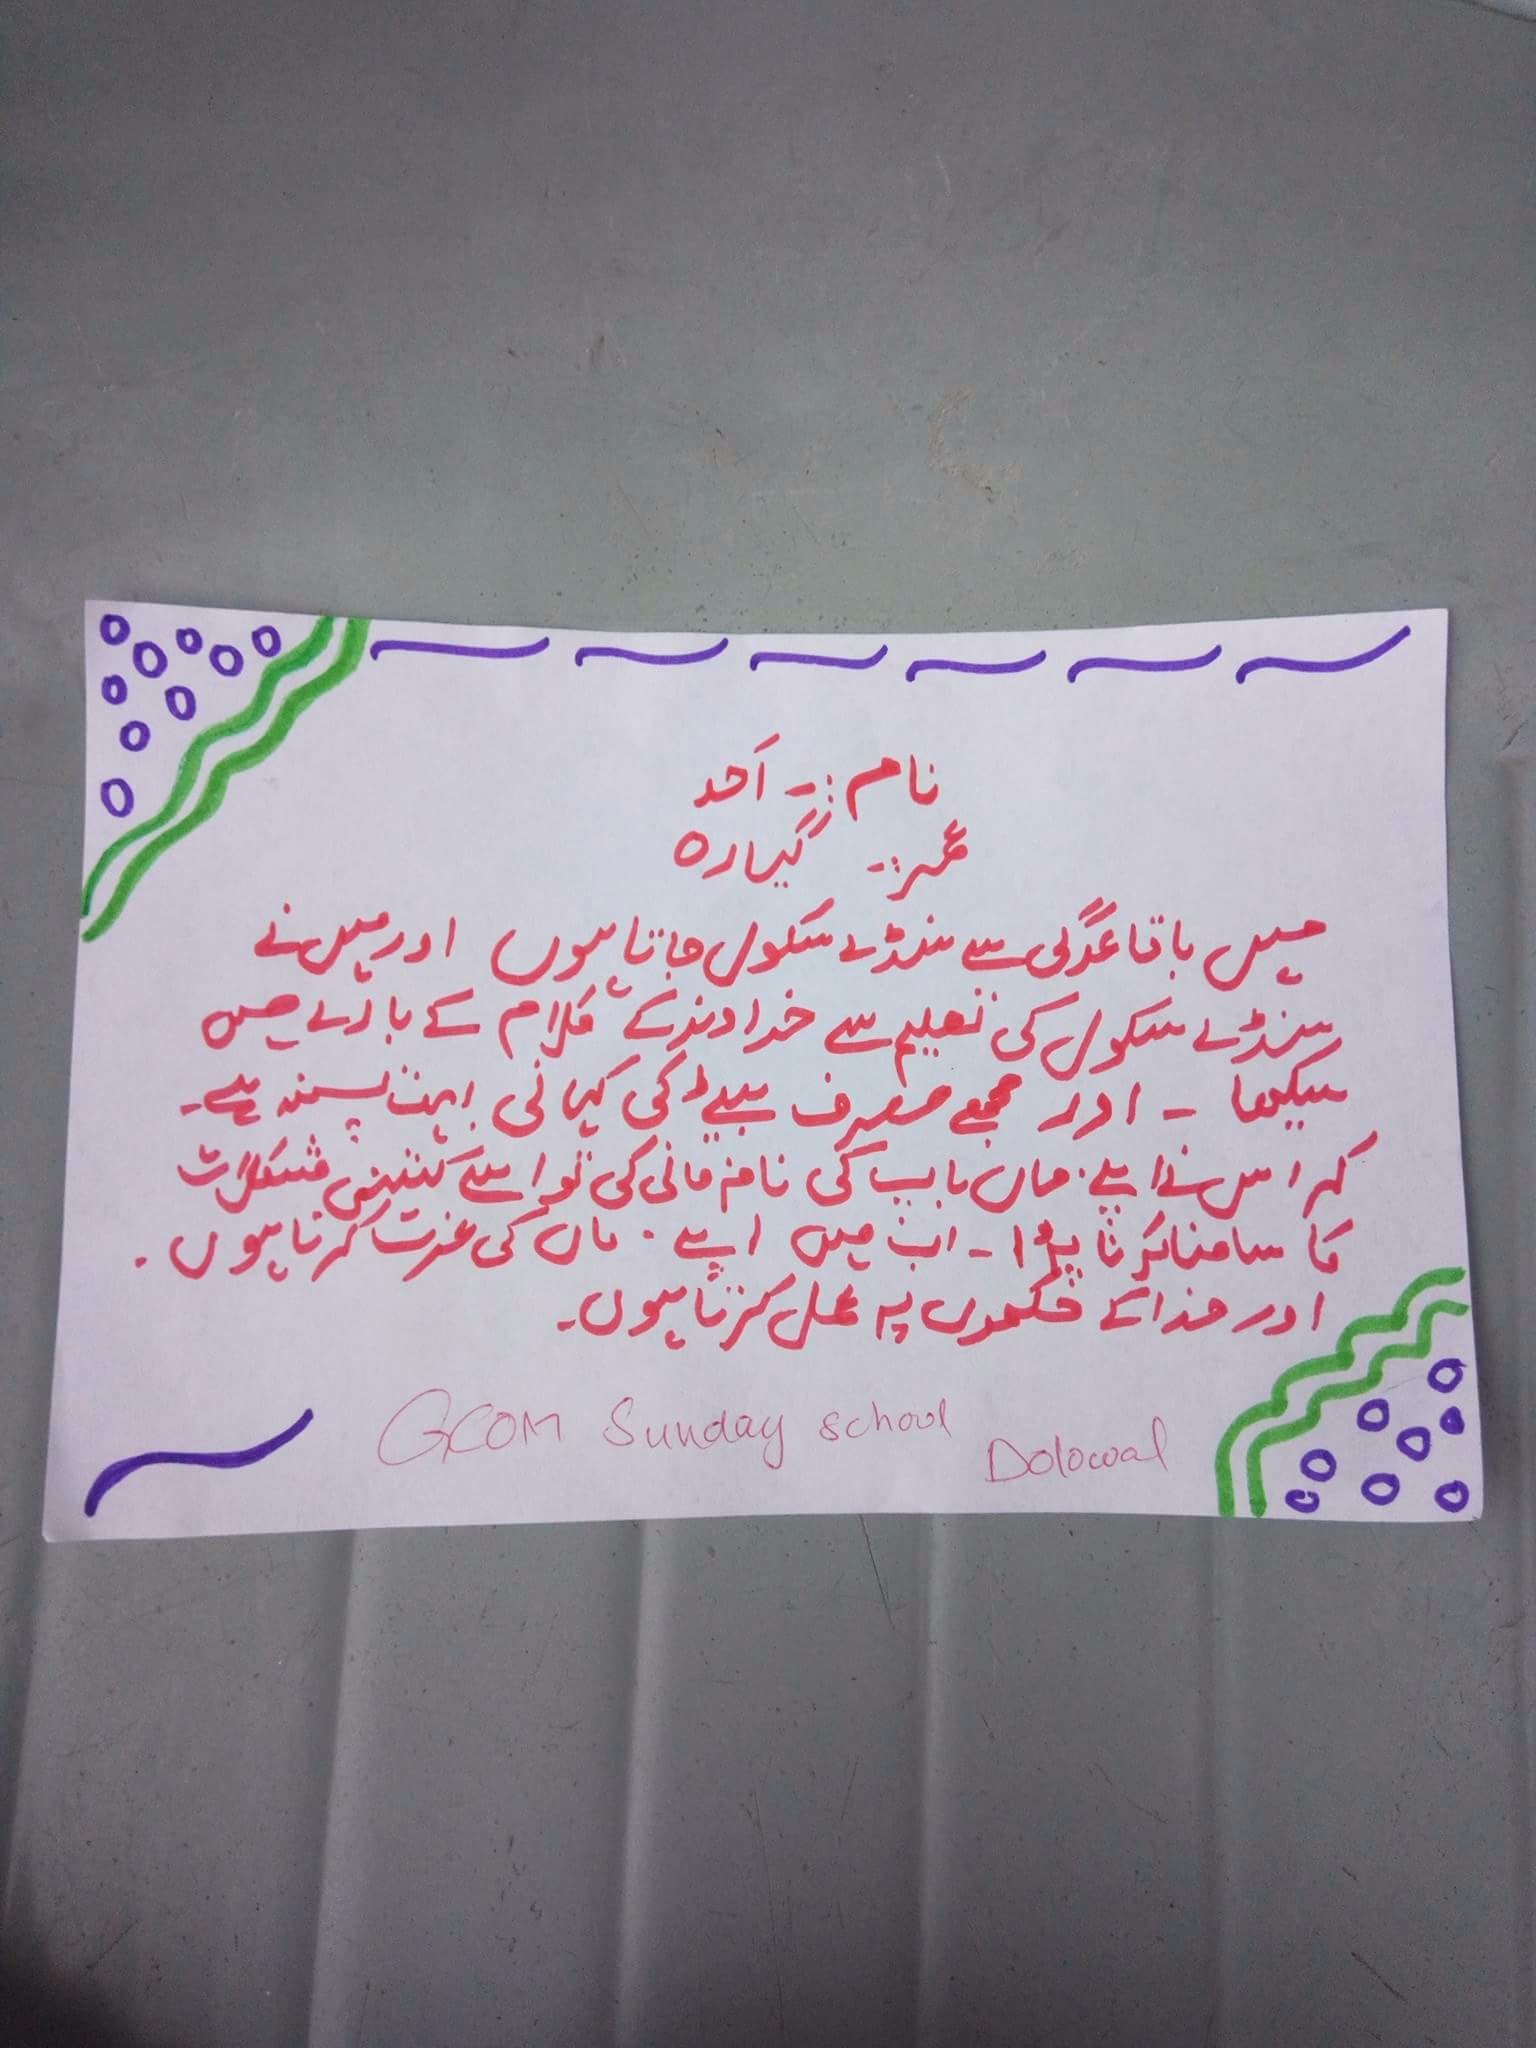 نام :۔ احد
عمر :۔ گیارہ
میں باقاعدگی سے سنڈے سکول جاتا ہوں اور میں نے
سنڈے سکول کی تعلیم سے خداوند کے کلام کے بارے میں
سیکھا ۔ اور مجھے مصرف بیٹے کی کہانی بہت پسند ہے۔
کہ اس نے اپنے ماں باپ کی نافرمانی کی تو اسے کتنی مشکلات
کا سامنا کرنا پڑا ۔ اب میں اپنے ماں کی عزت کرتا ہوں ۔
اور خدا کے حکموں پہ عمل کرتا ہوں۔
GCOM Sunday school
Dolowal